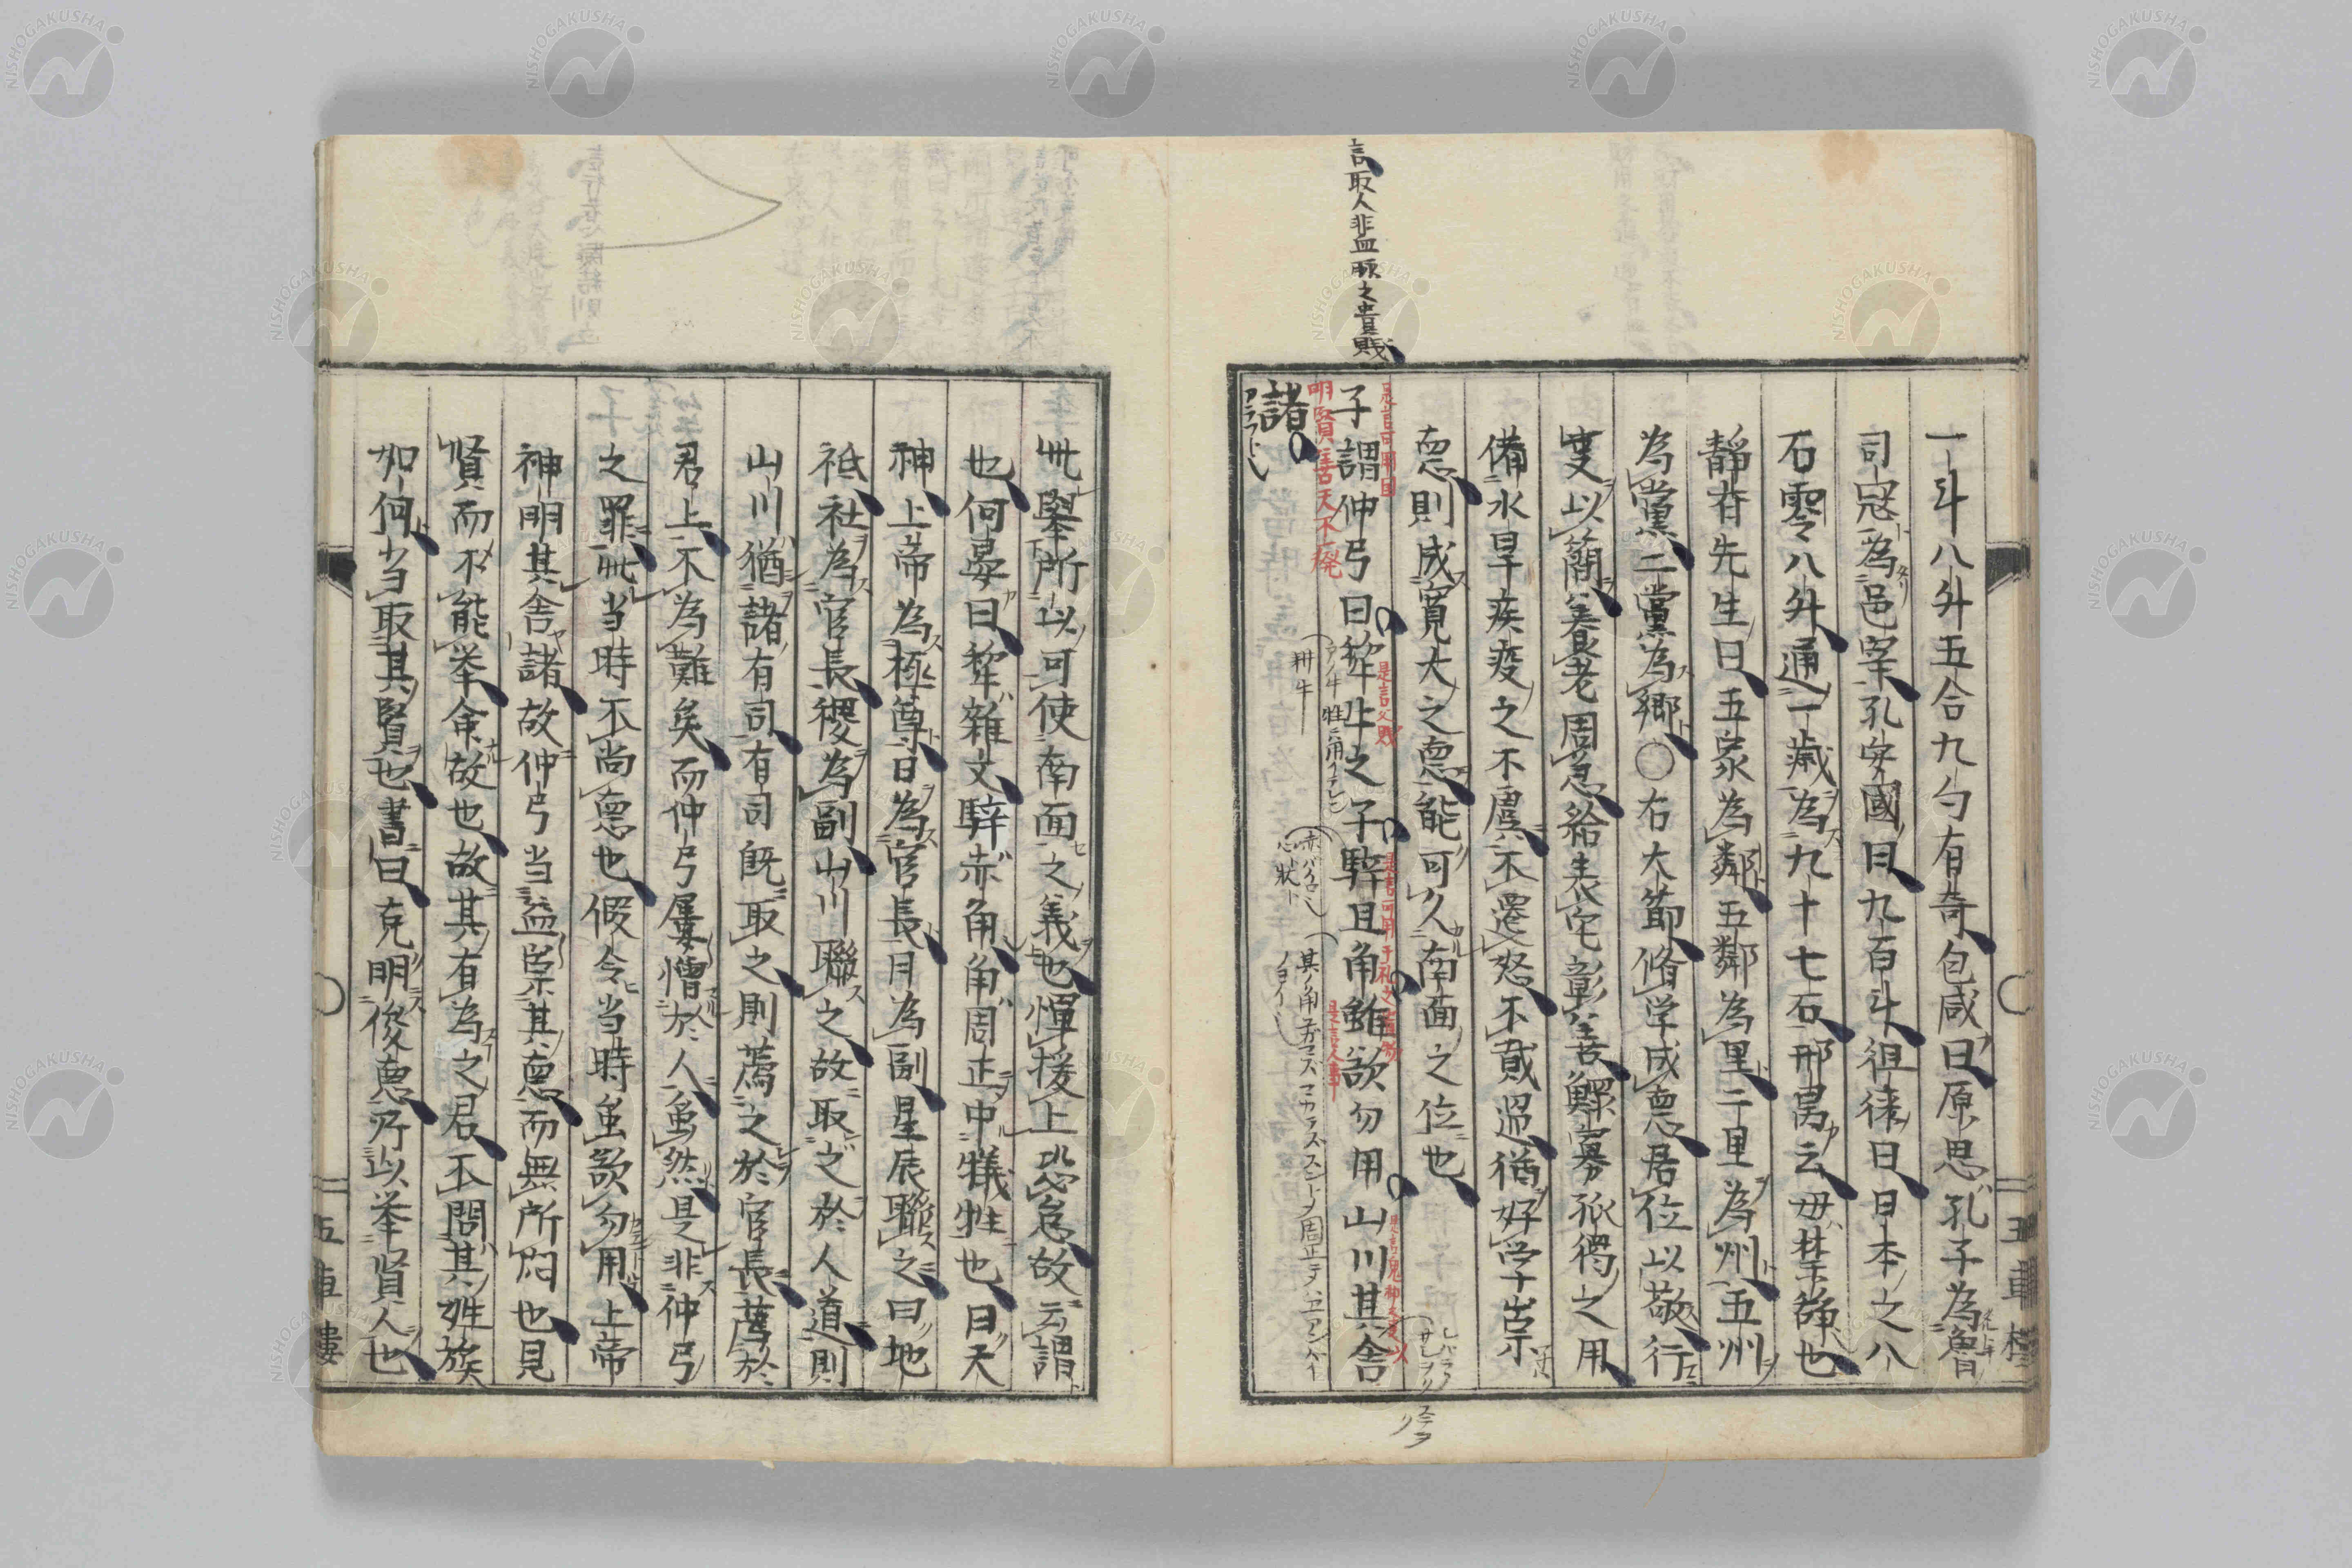 一斗八升五合九勺有奇包咸曰原思孔子為魯
司寇為邑宰孔安國曰九百斗徂徠曰日本之八
石零八升通一歳為九十七石邢昺云毋禁辞也
静斎先生曰五家為鄰五鄰為里二里為州五州
為黨二黨為郷〇右大節脩学成悳居位以敬行
以簡養老周急給表宅彰善鰥寡孤獨之用
備水旱疾疫之不虞不遷怒不貳過猶好学崇
悳則成寛大之悳能可久南面之位也
言取人非血脈之貴賤
是言可用国
子謂仲弓曰犂牛之子騂且角雖欲勿用山川其舎
是言父賤
是言可用于礼之
是言人事
明賢善天不廃
耕牛
諸
此舉所以可使南面之義也憚援上恐怠故云謂
也何晏曰犂雑文騂赤角角周正中犠牲也日天
神上帝為極尊日為官長月為副星辰聯之曰地
祇社為官長稷為副山川聯之故取之於人道則
山川猶諸有司有司既取之則薦之於官長薦於
君上不為難矣而仲弓屢憎於人虽然是非仲弓
之罪此当時不尚悳也假令当時虽欲勿用上帝
神明其舎諸故仲弓当益崇其悳而無所悶也見
賢而不能挙余故也故其有為之君不問其姓族
如何当取其賢也書曰克明俊悳所以挙賢人也
五車樓
NISHOGAKUSHA